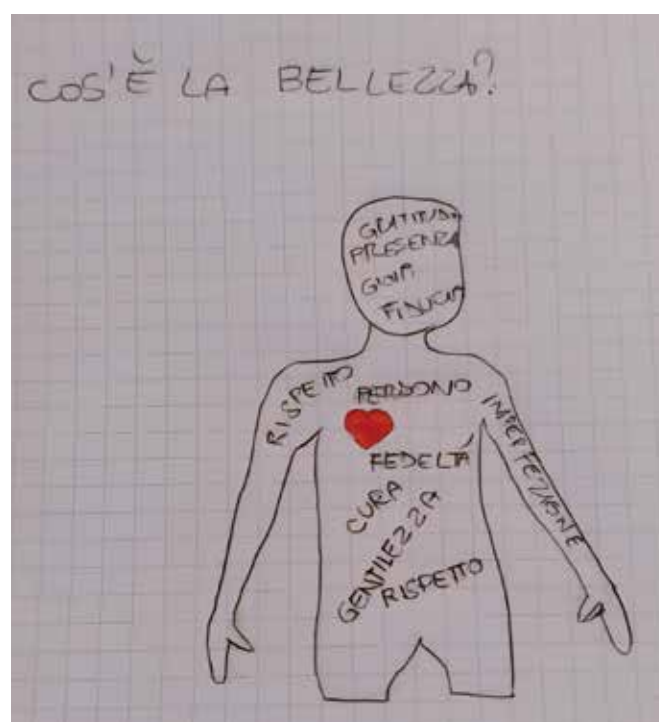 COS'È LA BELLEZZA?
GRATITUDINE
PRESENZA
GIOIA
FIDUCIA
RISPETTO
PERDONO
IMPERFEZIONE
FEDELTÀ
CURA
GENTILEZZA
RISPETTO